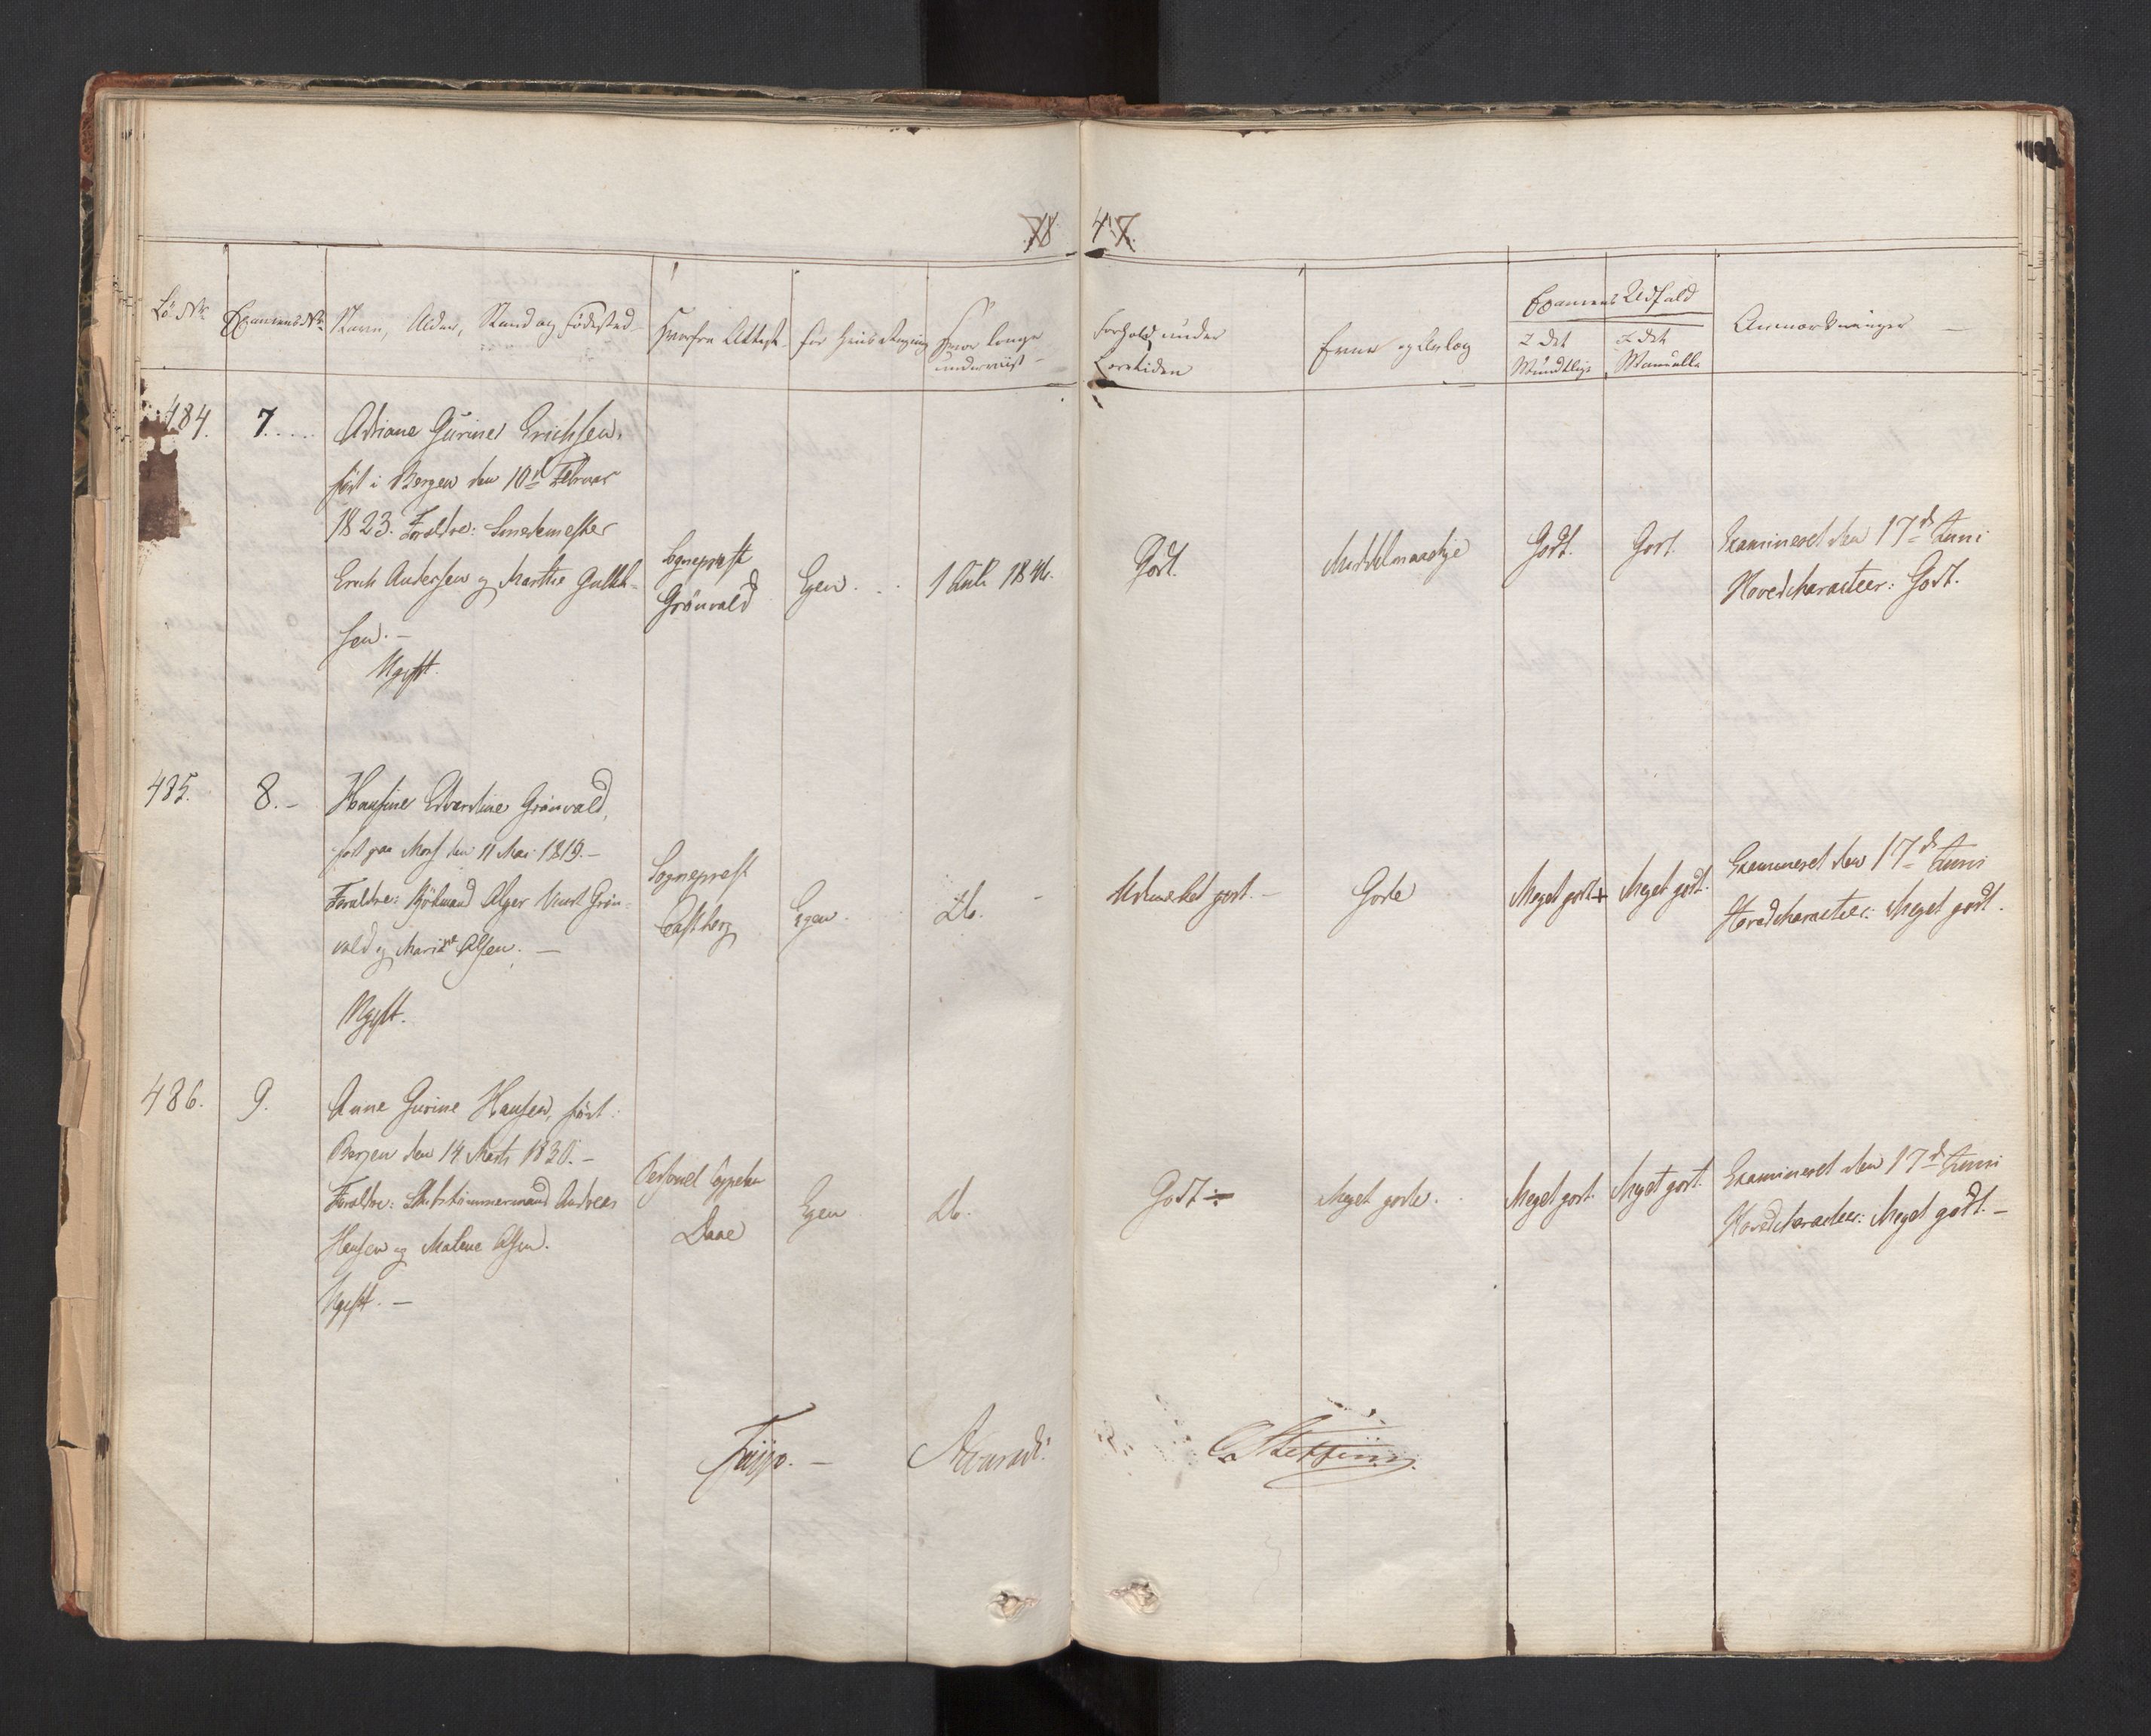 47.
Lö. Nr. Examens Nr. Navn, Alder, Stand og Födested Hvorfra Attest. for hvis Regning Hvor længe
underviist
Forhold under
Læretiden
Evner og Anlæg
Examens Udfald
I det
Mundtlige
I det
Manuelle
Anmærkninger
484. 7.
Adriane Gurine Erichsen,
född i Bergen den 10d Februar
1823. Forældre: Smedemester
Erich Andersen og Marthe Gullik-
sen. –
Ugift.
Sogneprest
Grönvald
Egen.
1 1846.
Godt.
Middelmaadige
Godt.
Godt.
Examineret den 17d Juni
Hovedcharacteer: Godt.
485. 8. –
Hansine Edvardine Grönvald,
född paa Mors den 11 Mai 1819. –
Forældre: Kjöbmand Grön-
vald og Marie Olsen. –
Ugift.
Sogneprest
Egen.
Do.
Udmerket godt. –
Gode
Meget godt +
Meget godt.
Examineret den 17d Juni
Hovedcharacteer: Meget godt.
486. 9.
Anne Gurine Hansen, född i
Bergen den 14 Marts 1820. –
Forældre: Skibstömmermand Andreas
Hansen og Malene Olsen.
Ugift. –
Personel Cappelan
Daae
Egen
Do.
Godt ÷
Meget gode.
Meget godt.
Meget godt.
Examineret den 17d Juni
Hovedcharacteer: Meget godt. –